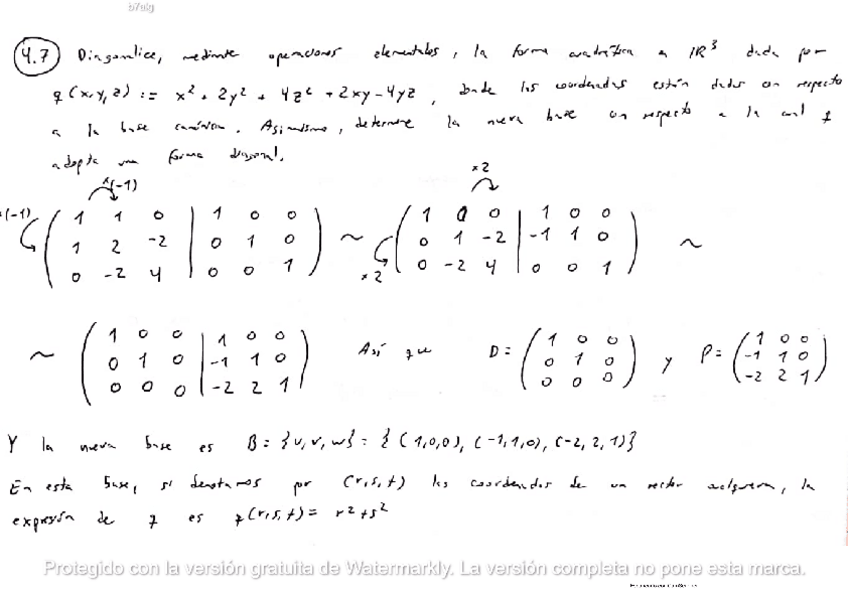 b7elg
4.7 Diagonalice, mediante operaciones elementales, la forma cuadrática en IR³ dada por
q(x,y,z) := x² + 2y² + 4z² + 2xy - 4yz, donde las coordenadas están dadas con respecto
a la base canónica. Asimismo, determine la nueva base con respecto a la cual q
adopta una forma diagonal.
x(-1) x2
x(-1) ( 1 1 0 | 1 0 0 ) ~ ( 1 0 0 | 1 0 0 ) ~
( 1 2 -2 | 0 1 0 ) ( 0 1 -2 | -1 1 0 )
( 0 -2 4 | 0 0 1 ) x2 ( 0 -2 4 | 0 0 1 )
~ ( 1 0 0 | 1 0 0 ) Así que D = ( 1 0 0 ) y P = ( 1 0 0 )
( 0 1 0 | -1 1 0 ) ( 0 1 0 ) ( -1 1 0 )
( 0 0 0 | -2 2 1 ) ( 0 0 0 ) ( -2 2 1 )
Y la nueva base es B = {u, v, w} = {(1,0,0), (-1,1,0), (-2,2,1)}
En esta base, si denotamos por (r,s,t) las coordenadas de un vector cualquiera, la
expresión de q es q(r,s,t) = r² + s²
Protegido con la versión gratuita de Watermarkly. La versión completa no pone esta marca.